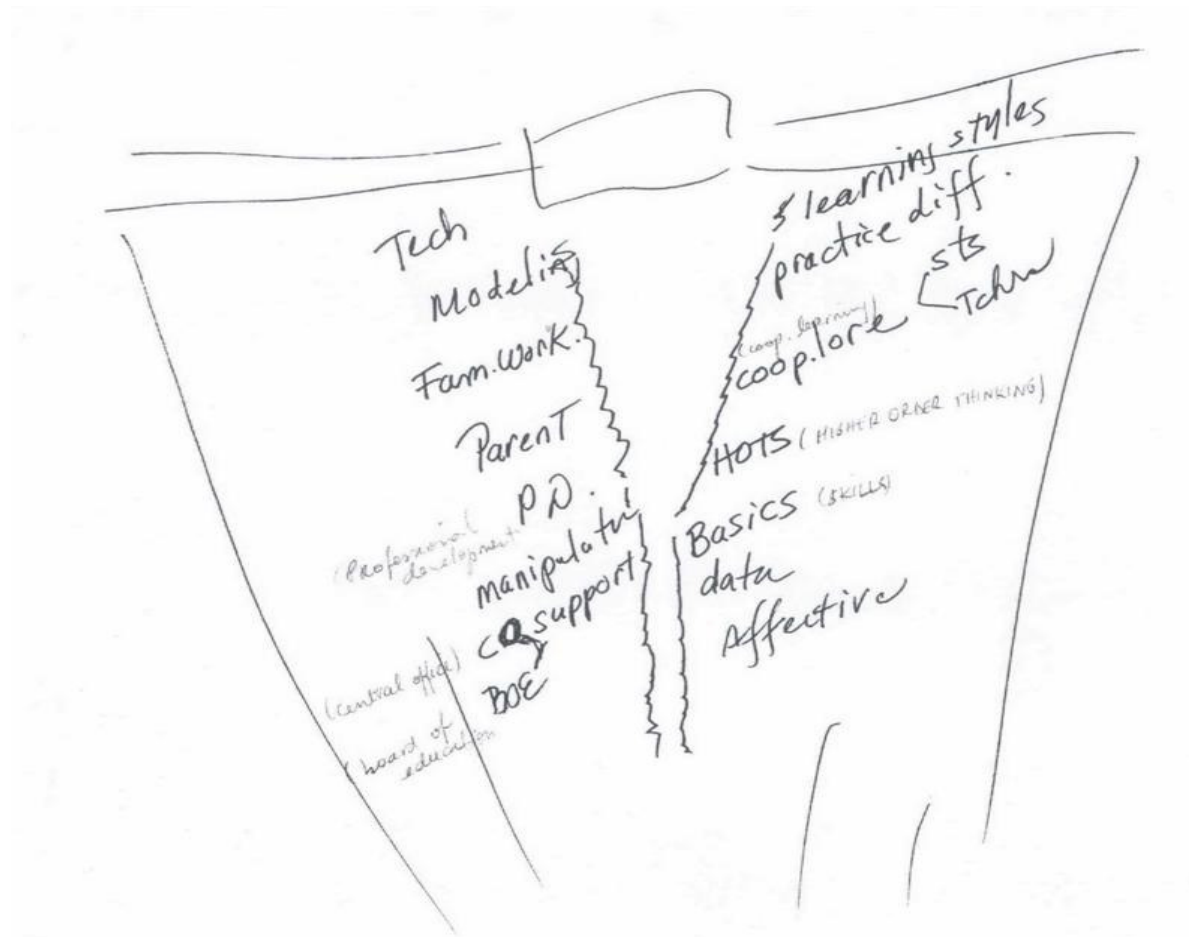 Tech
Modeling
Fam. Work.
Parent
P.D.
(Professional
development
manipulatv
support
CO
(central office)
BOE
(board of
education
learning styles
practice diff.
sts
Tchr
(coop. learning)
coop. lore
HOTS (HIGHER ORDER THINKING)
Basics (SKILLS)
data
Affective